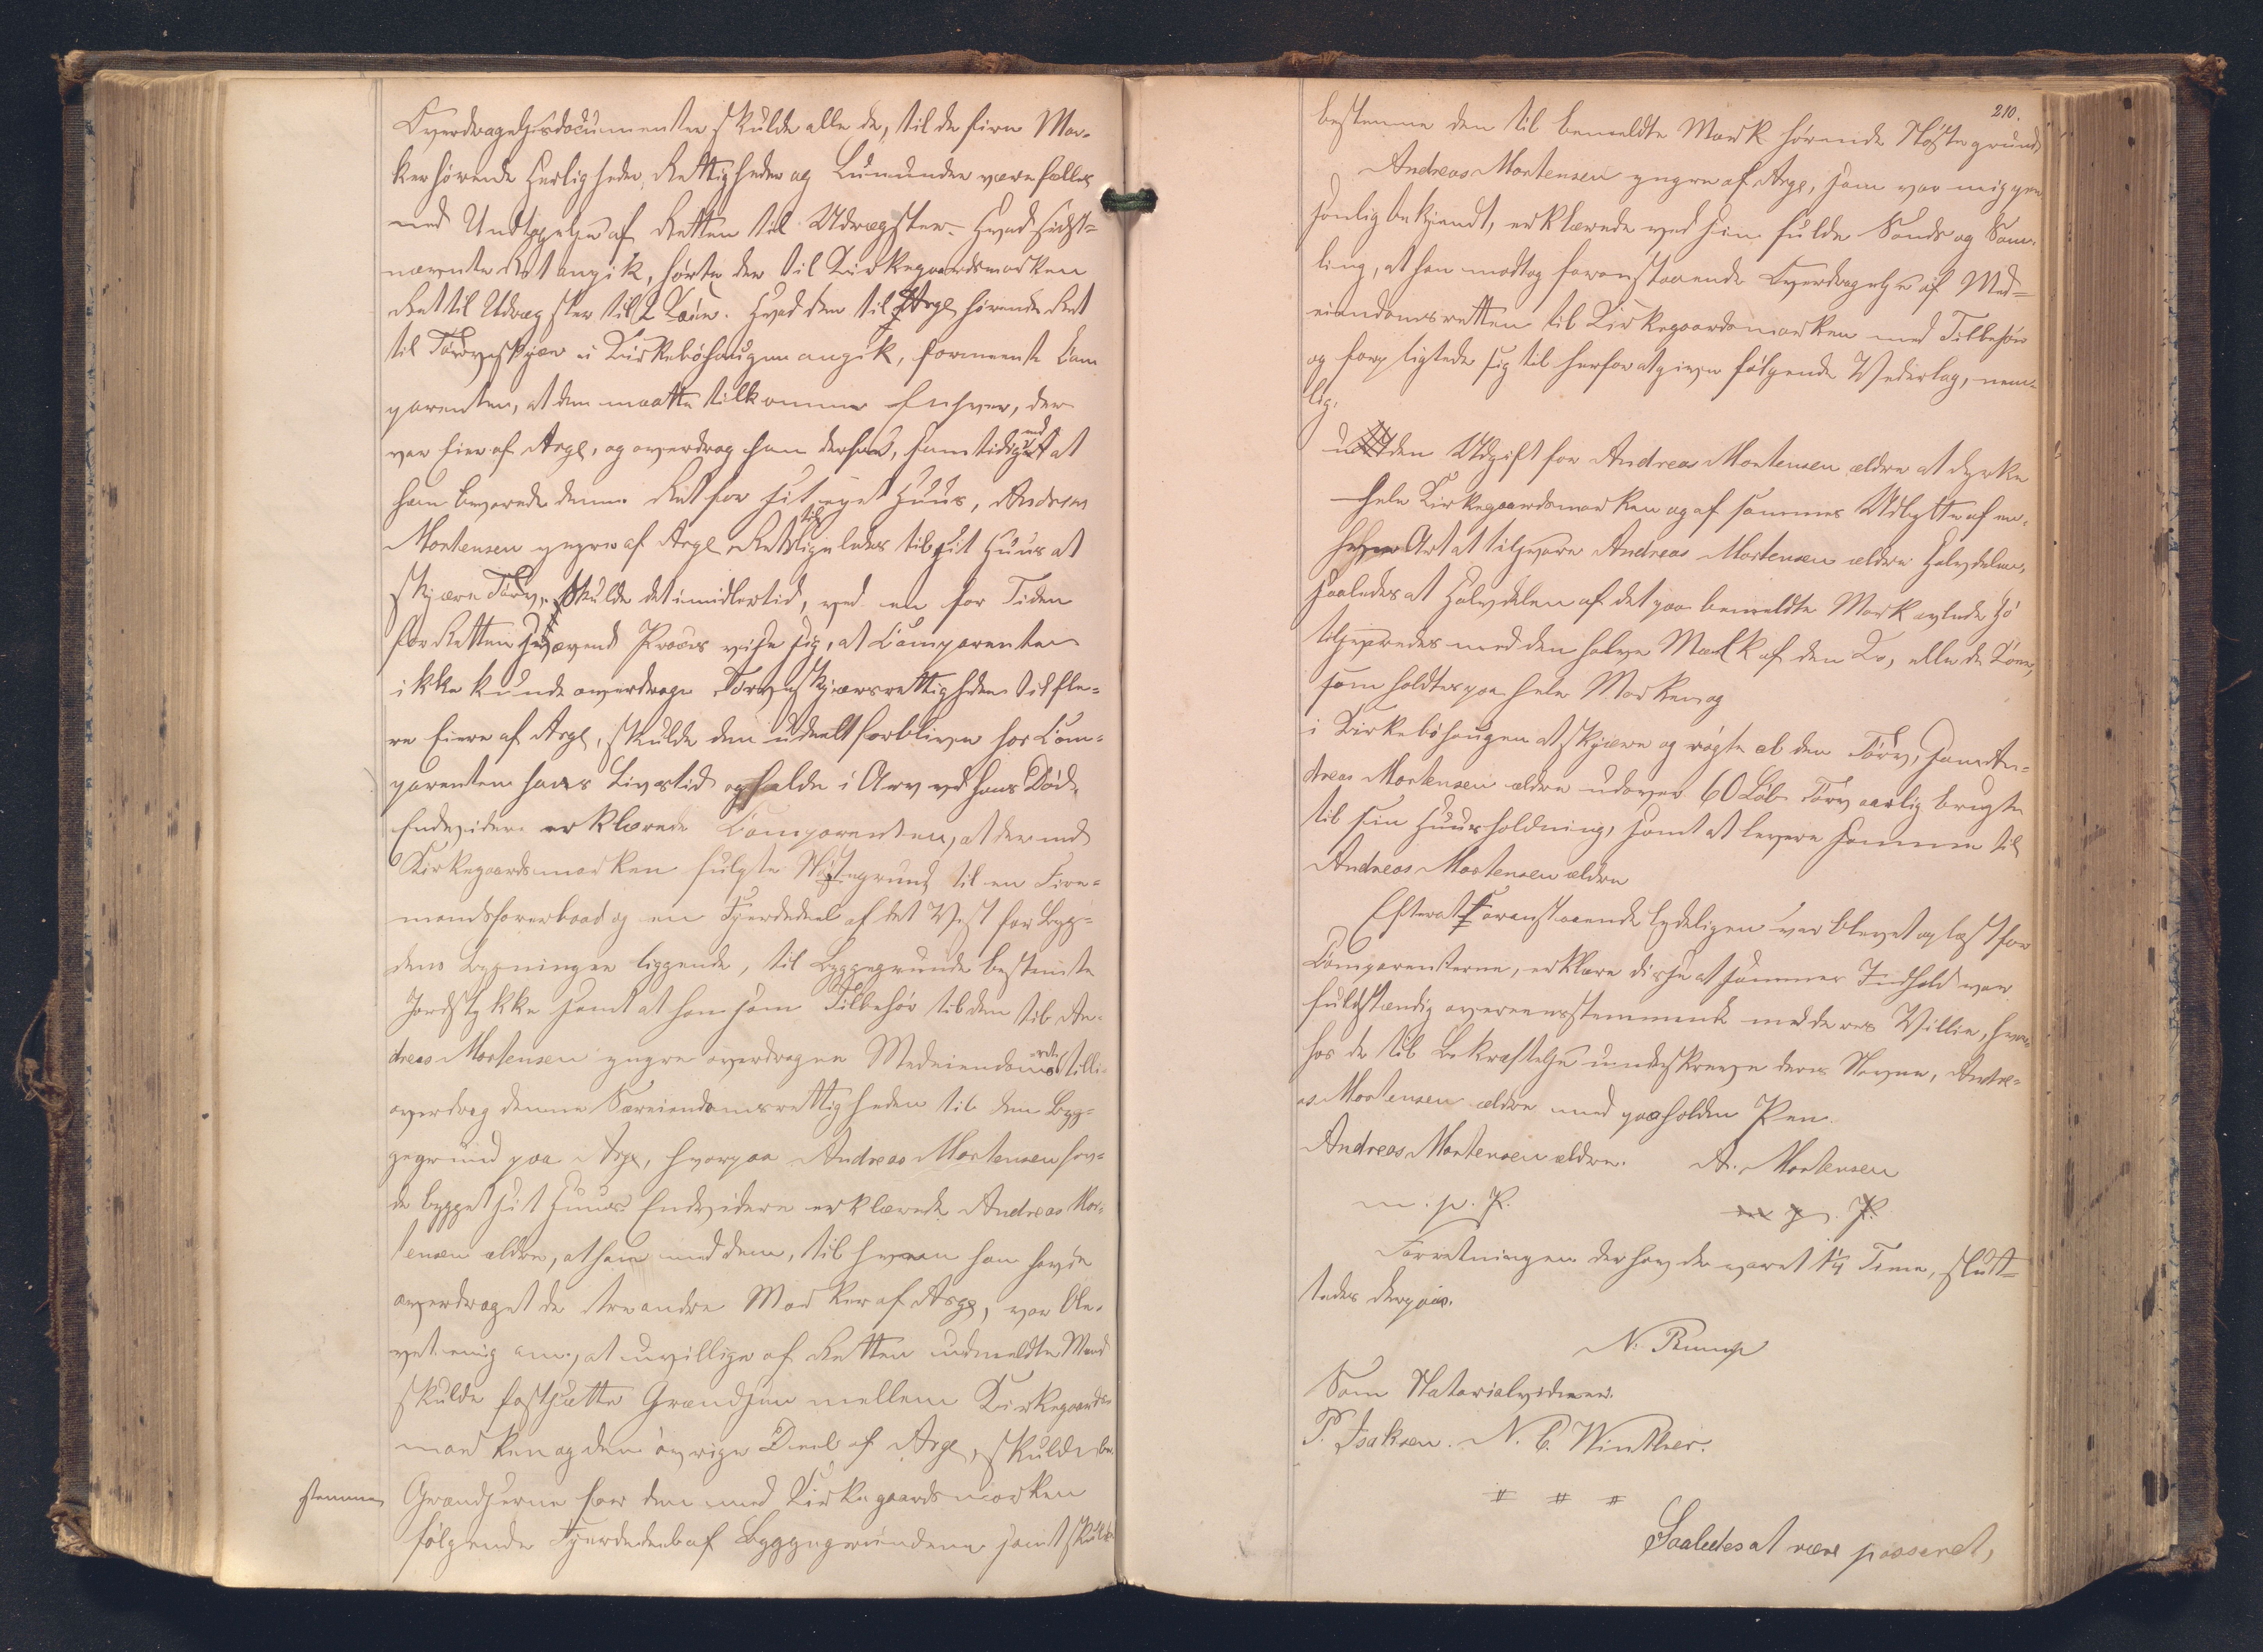 Overdragelsesdocumenter skulde alle de, til de fire Mar-
ker hørende Herligheder, Rettigheder og Lunnender være fælles
med Undtagelse af Retten til Udrægster. Hvad sidst-
nævnte Ret angik, hørte der til Kirkegaardsmarken
Ret til Udrægster til 2 Køer. Hvad den til Arge hørende Ret
til Tørveskjær i Kirkebøhaugen angik, formeente Com
parenten, at den maatte tilkomme Enhver, der
var Eier af Arge, og overdrog han derfor, samtidigt med at
han bevarede denne Ret for sit eget Huus, Andreas
Mortensen yngre af Arge Ret til ligeledes til sit Huus at
skjære Tørv. Skulde det imidlertid, ved en for Tiden
for Retten svævende Proces vise sig, at Comparenten
ikke kunde overdrage Tørveskjærsrettigheden til fle-
re Eiere af Arge, skulde den udeelt forblive hos Com-
parenten hans Livstid og falde i Arv ved hans Død.
Endvidere erklærede Comparenten, at der med
Kirkegaardsmarken fulgte Nøstegrund til en Fire-
mandsfarerbaad og en Fjerdedeel af det Vest for Byg-
dens Bygninger liggende, til Byggegrunde bestemte
Jordstykke samt at han som Tilbehør til den til An-
dreas Mortensen yngre overdragne Medeiendomsret tilli-
overdrog denne Særeiendomsrettigheden til den Byg-
gegrund paa Arge, hvorpaa Andreas Mortensen hav-
de bygget sit Huus. Endvidere erklærede Andreas Mor-
tensen ældre, at han med dem, til hvem han havde
overdraget de tre andre Marker af Arge, var ble-
vet enig om, at uvillige af Retten udmeldte Mænd
skulde fastsætte Grændsen mellem Kirkegaards-
marken og den øvrige Deel af Arge, skulde be-
stemme Grændserne for den med Kirkegaardsmarken
følgende Fjerdedeel af Byggegrundene samt skulde
210.
bestemme den til bemeldte Mark hørende Nøstegrund.
Andreas Mortensen yngre af Arge, som var mig per-
sonlig bekjendt, erklærede ved sin fulde Sands og Sam-
ling, at han modtog foranstaaende Overdragelse af Med-
eiendomsretten til Kirkegaardsmarken med Tilbehør
og forpligtede sig til herfor at give følgende Vederlag, nem-
lig:
uden Udgift for Andreas Mortensen ældre at dyrke
hele Kirkegaardsmarken og af sammes Udbytte af en-
hver Art at tilsvare Andreas Mortensen ældre Halvdelen,
saaledes at Halvdelen af det paa bemeldte Mark avlede Hø
tilsvaredes med den halve Mælk af den Ko, eller de Køer,
som holdtes paa hele Marken og
i Kirkebøhaugen at skjære og røgte al den Tørv, som An-
dreas Mortensen ældre udover 60 Løb Tørv aarlig brugte
til sin Huusholdning, samt at levere samme til
Andreas Mortensen ældre
Efterat Foranstaaende lydeligen var blevet oplæst for
Comparenterne, erklære disse at sammes Indhold var
fuldstændig overeensstemmende med deres Villie, hvor-
hos de til Bekræftelse underskreve deres Navne, Andre-
as Mortensen ældre med paaholden Pen.
Andreas Mortensen ældre. A. Mortensen
m. p. P. m p. P.
Forretningen der havde varet 1¼ Time, slut-
tedes derpaa.
N. Rump
Som Notarialvidner.
P. Isaksen. N. C. Winther.
# # #
Saaledes at være passeret,